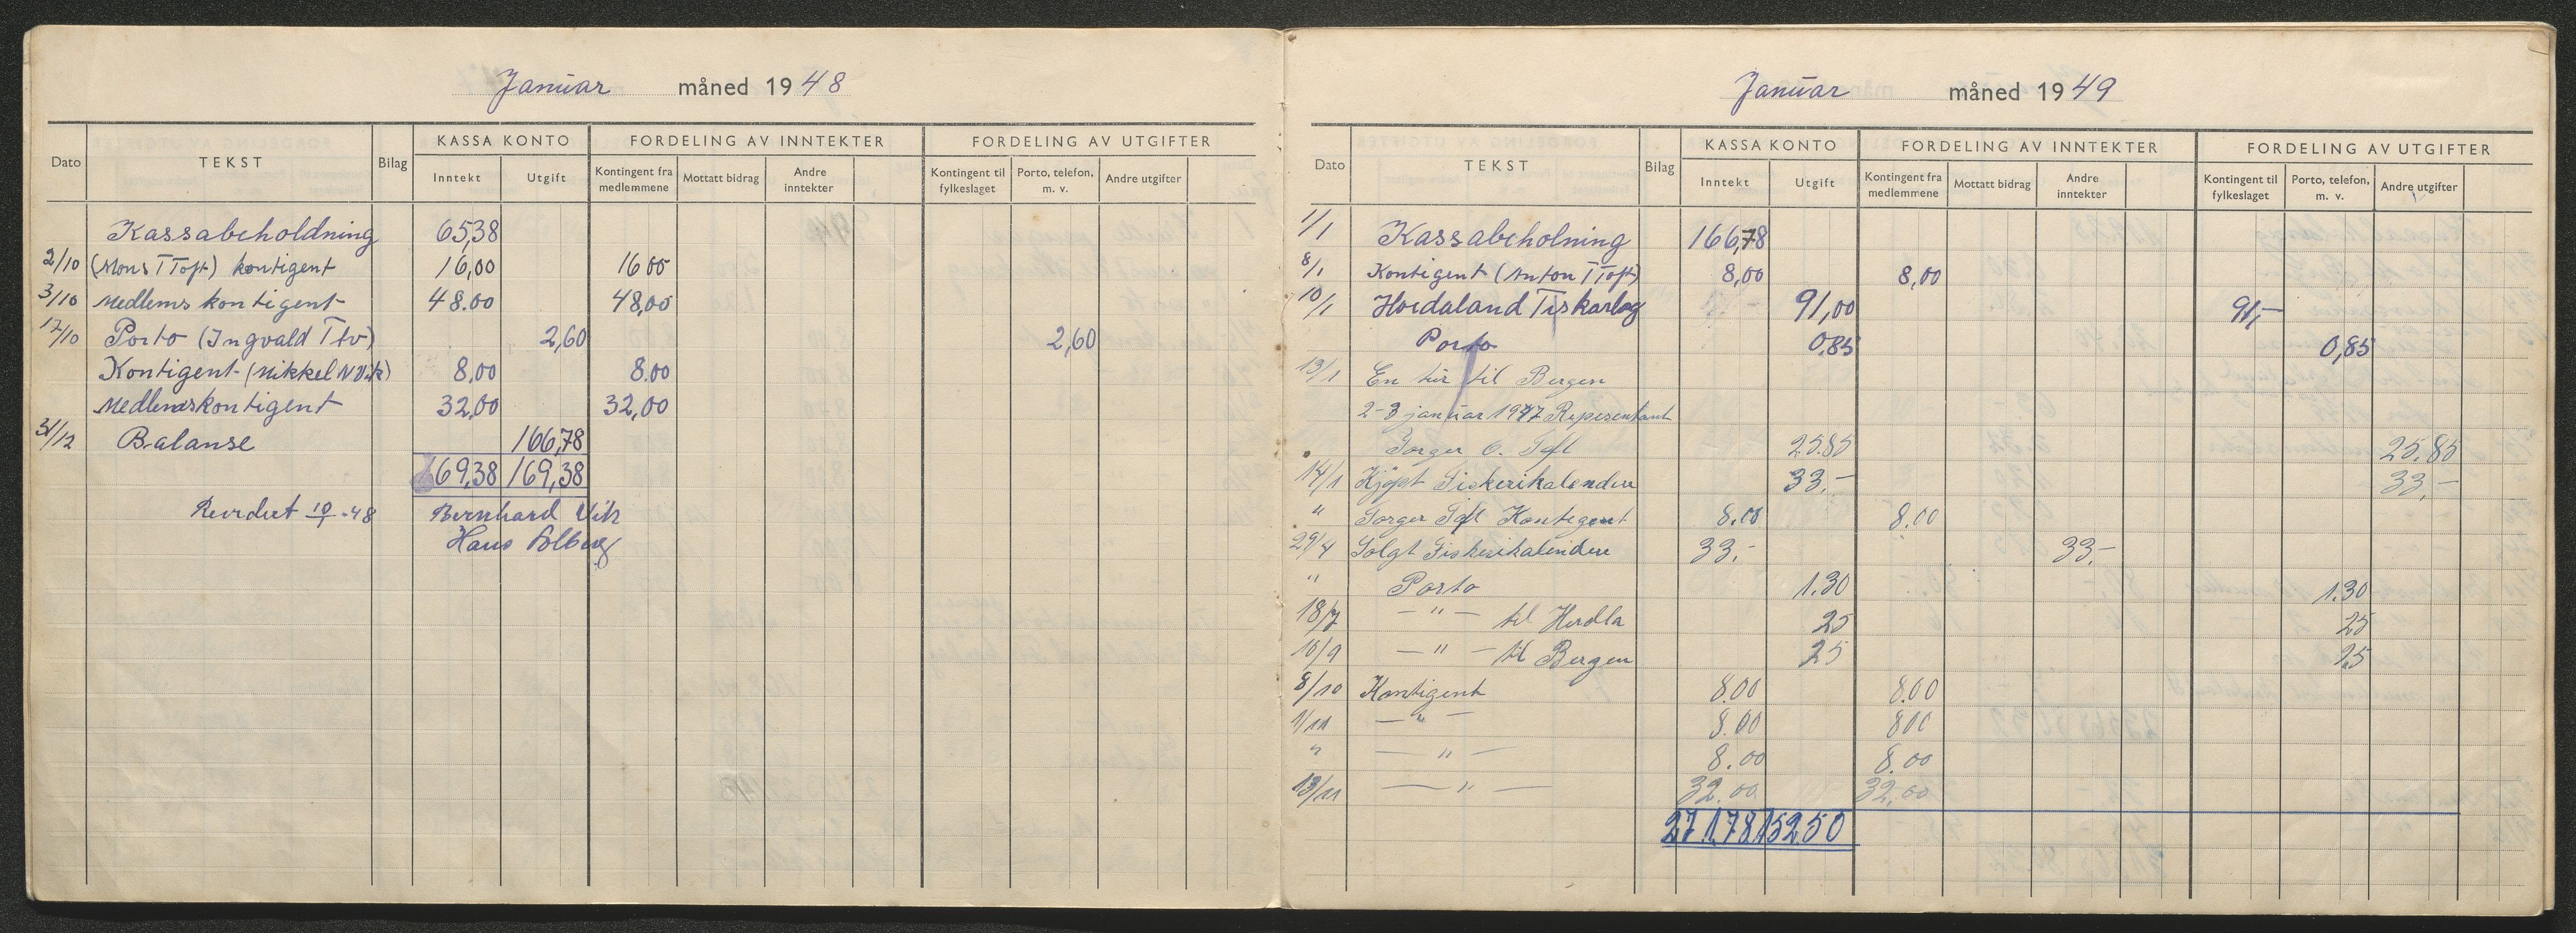 Januar måned 1948
KASSA KONTO FORDELING AV INNTEKTER FORDELING AV UTGIFTER
Dato TEKST Bilag Inntekt Utgift Kontingent fra medlemmene Mottatt bidrag Andre inntekter Kontingent til fylkeslaget Porto, telefon, m. v. Andre utgifter
Kassabeholdning 65,38
2/10 (Mons T Toft) kontigent 16,00 16 00
3/10 Medlems kontigent 48.00 48,00
17/10 Porto (Ingvald Tlv) 2,60 2,60
Kontigent (Mikkel N Vik) 8,00 8.00
Medlemskontigent 32,00 32,00
31/12 Balanse 166,78
169,38 169,38
Revidert 10/1 -48 Bernhard Vik
Hans Solberg
Januar måned 1949
KASSA KONTO FORDELING AV INNTEKTER FORDELING AV UTGIFTER
Dato TEKST Bilag Inntekt Utgift Kontingent fra medlemmene Mottatt bidrag Andre inntekter Kontingent til fylkeslaget Porto, telefon, m. v. Andre utgifter
1/1 Kassabeholning 166,78
8/1 Kontigent (Anton T Toft) 8,00 8,00
10/1 Hordaland Fiskarlag 91,00 91,-
Porto 0,85 0,85
13/1 En tur til Bergen
2-3 januar 1947 Representant
Torger O. Toft 25.85 25.85
14/1 Kjöpt Fiskerikalendere 33.- 33.-
" Torger Toft Kontigent 8.00 8.00
29/4 Solgt Fiskerikalendere 33.- 33.-
" Porto 1.30 1.30
18/7 — " — til Herdla 25 25
10/9 — " — til Bergen 25 25
8/10 Kontigent 8.00 8.00
1/11 — " — 8.00 8 00
" — " — 8.00 8.00
13/11 — " — 32.00 32.00
271,78 152.50